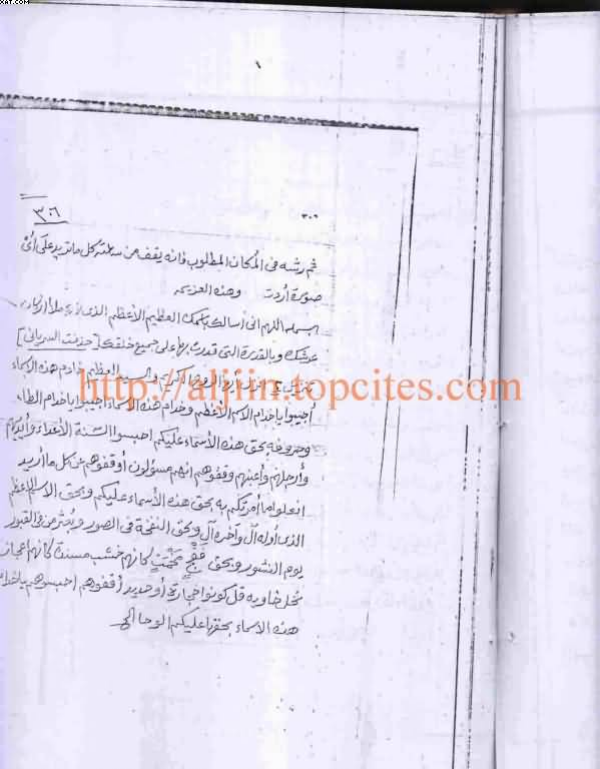 XAT.COM
٣٠٦
٣٠٦
ثم رشه في المكان المطلوب فانه يقف من ساعته كل ما تريد على أي
صورة أردت وهذه العزيمه
بسم الله اللهم اني أسالك باسمك العظيم الأعظم الذي ملأ اركان
عرشك وبالقدرة التي قدرت بها على جميع خلقك [حذفت السرياني]
العظم خادم هذه الاسماء
http://aljiin.topcites.com
أجيبوا ياخدام الاسم الأعظم وخدام هذه الاسماء أجيبوا ياخدام الطاء
وحروفه بحق هذه الأسماء عليكم احبسوا السنة الأعداء وأيديهم
وأرجلهم وأعينهم وقفوهم انهم مسؤلون أوقفوهم عن كل ما أريد
افعلوا ما أمرتكم به بحق هذه الأسماء عليكم وبحق الاسم الاعظم
الذي أوله آل وآخره آل وبحق النفخة في الصور وبعثر من في القبور
يوم النشور وبحق فقج مخمت كأنهم خشب مسندة كانهم اعجاز
نخل خاويه قل كونوا حجارة أو حديد أوقفوهم احبسوهم ياخدام
هذه الاسماء بحقها عليكم الوحا الخ